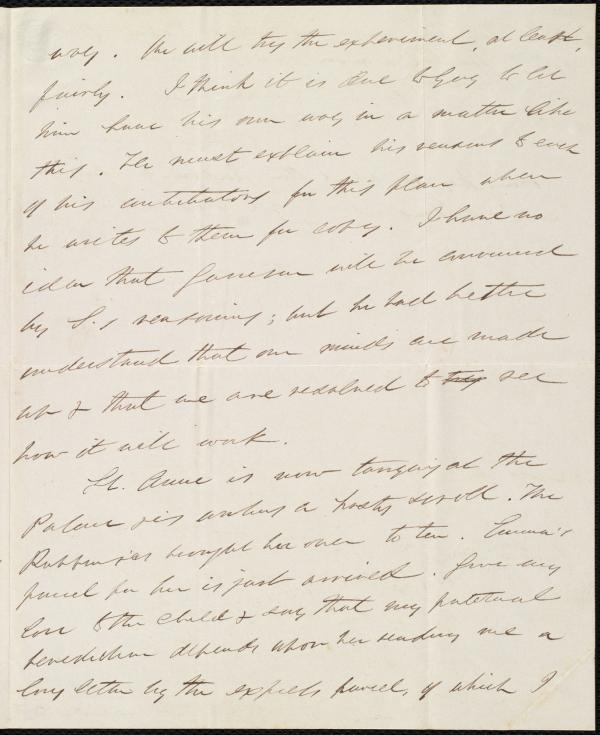 way. We will try the experiment, at least,
fairly. I think it is due to Gay to let
him have his own way in a matter like
this. He must explain his reasons to each
of his contributors for this plan when
he writes to them for copy. I have no
idea that Garrison will be convinced
by S.'s reasoning; but he had better
understand that our minds are made
up & that we are resolved to try see
how it will work.
St. Anne is now tarrying at the
Palace & is making a hasty scroll. The
brought her over to tea. Emma's
parcel for her is just arrived. Give my
love to the child & say that my paternal
benediction depends upon her sending me a
long letter by the express parcel, of which I